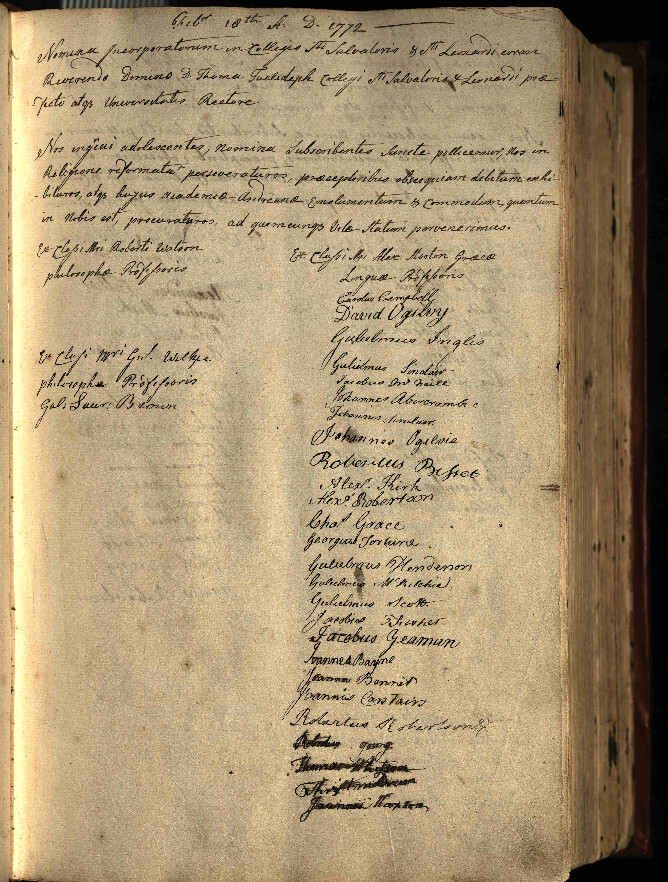 Febr. 18th A. D. 1772
Nomina Incorporatorum in Collegio Sti Salvatoris & Sti Leonardi coram
Reverendo Domino D. Thoma Tulideph Collegi Sti Salvatoris & Leonardi præ
fecto atqȝ Universitatis Rectore
Nos ingenui adolescentes, nomina Subscribentes Sancte pollicemur, Nos in
Religione reformata perseveraturos, præceptoribus obsequium debitum exhi-
bituros, atqȝ hujus Academiæ Andreanæ Emolumentum & Commodum, quantum
in Nobis est, procuraturos, ad quemcunqȝ Vitæ Statum pervenerimus.
Ex Classi Mri Roberti Watson
philosophæ Professoris
Ex Classi Mri Gul. Wilkie
philosophæ Professoris
Gul: Laur: Brown
Ex Classi Mri Alex Morton Græcæ
Linguæ Professoris
Carolus Campbell
David Ogilvy
Gulielmus Inglis
Gulielmus Sinclair
Jacobus
Johannes Abercrombie
Johannes Sinclair
Johannes Ogilvie
Robertus Bisset
Alexr. Kirk
Alexr. Robertson
Chas. Grace
Georgius Fortune
Gulielmus Henderson
Gulielmus McRitchie
Gulielmus Scott
Jacobus
Jacobus Geamun
Joannes Bayne
Joannes Bennet
Joannis Carstairs
Robertus Robertson
Robertus Young
Thomas
Joannes